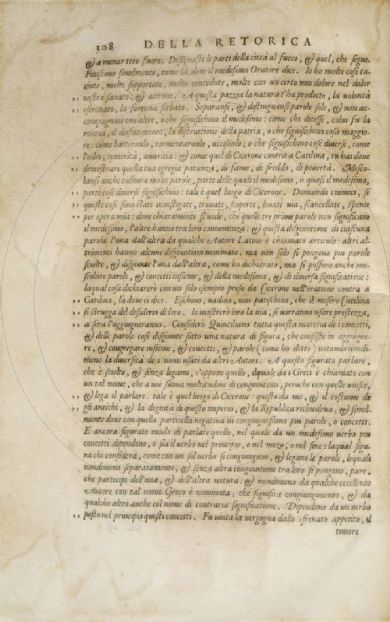 308 DELLA RETORICA
& a menar tero fuore. Dissegnasti le parti della città al fuoco, & quel, che segue.
Finiscono similmente, come là, dove il medesimo Oratore dice. Io ho molte cose ta-
ciute, molte supportate, molte concedute, molte con un certo mio dolore nel dolor
nostro sanate: & altrove. A questa pazzia la natura t'ha prodotto, la volontà
esercitato, la fortuna serbato. Separansi, & distinguansi parole sole, & non ac-
compagnate con altre, o che significhino il medesimo: come chi dicesse, colui fu la
rovina, il disfacimento, la distruttione della patria, o che significhino cosa maggio-
re: come batterono, tormentarono, uccisono; o che significhino cose diverse, come
l'odio, temerità, avaritia: & come quel di Cicerone contra a Catilina, tu hai dove
dimostrare quella tua egregia patienza, di fame, di freddo, di povertà. Mesco-
lansi anche talhora molte parole, parte delle quali il medesimo, o quasi il medesimo,
parte cose diverse significhino: tale è quel luogo di Cicerone. Domando i numeri, se
queste cose sono state investigate, trovate, scoperte, levate via, scancellate, spente
per opera mia: dove chiaramente si vede, che quelle tre prime parole non significano
al medesimo, l'altre hanno tra loro convenenza: & questa disgiuntione di ciascuna
parola l'una dall'altra da qualche Autore Latino è chiamato articulo: altri al-
trimenti hanno alcune disgiuntioni nominate, ma non solo si pongono più parole
sciolte, & disgiunte l'una dall'altra, come ho dichiarato, ma si possino anche me-
scolare parole, & concetti insieme, & della medesima, & di diversa significatione:
laqual cosa dichiarerò con un solo essempio preso da Cicerone nell'oratione contra a
Catilina, la dove ci dice. Eschino, vadino, non patischino, che 'l misero Catilina
si strugga del desiderio di loro. Io mostrerò loro la via, se vorranno usare prestezza,
a sera l'aggiugneranno. Considerò Quintiliano tutta questa materia de concetti,
& delle parole così disgiunte sotto una natura di figura, che consiste in aggiugne-
re, & congregare insieme, & concetti, & parole (come ho detto) notando nondi-
meno la diversità de i nomi usati da altri Autori. A questo figurato parlare,
che è sciolto, & senza legami, s'appone quello, il quale da i Greci è chiamato con
un tal nome, che a noi suona moltitudine di congiuntioni, perochè con quelle unisce,
& lega il parlare. tale è quel luogo di Cicerone: questo da me, & il costume de
gli antichi, & la degnità di questo imperio, & la Republica richiedeva, & simil-
mente dove con quella particella negativa si congiungessino più parole, o concetti.
E ancora figurato modo di parlare quello, nel quale da un medesimo verbo più
concetti dipendono, o sia il verbo nel principio, o nel mezo, o nel fine: laqual figu-
ra chi considera, come con un sol verbo si congiungono, & legano le parole, lequali
nondimeno separatamente, & senza altra congiuntione tra loro si pongono, pare,
che participi dell'una, & dell'altra natura: & nondimeno da qualche eccellente
Autore con tal nome Greco è nominata, che significa congiungimento, & da
qualche altro anche col nome di contraria significatione. Dipendono da un verbo
posto nel principio questi concetti. Fu vinta la vergogna dallo sfrenato appetito, il
timore